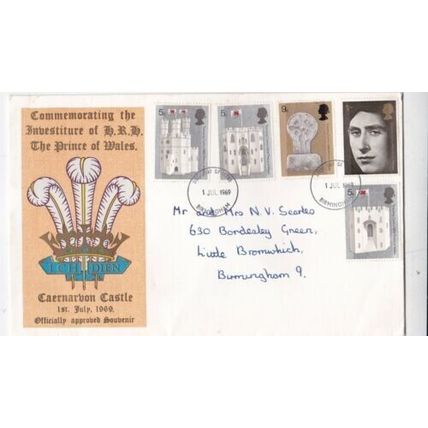 Commemorating the
Investiture of H.R.H.
The Prince of Wales.
ICH DIEN
Caernarvon Castle
1st. July, 1969.
Officially approved Souvenir
5D
5D
9D
1 JUL 1969
BIRMINGHAM
1 JUL 1969
BIRMINGHAM
5D
Mr and Mrs N.V. Searles
630 Bordesley Green,
Little Bromwich,
Birmingham 9.